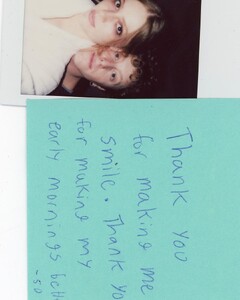 Thank you
for making me
smile. Thank yo
for making my
early mornings bett
-so